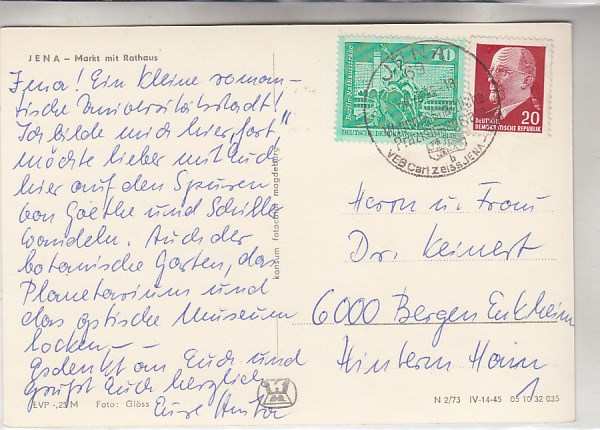 JENA – Markt mit Rathaus
Jena! Ein kleine roman-
tische Universitätsstadt!
Ich bilde mich hier „fort"
möchte lieber mit Euch
hier auf den Spuren
von Goethe und Schiller
wandeln. Auch der
botanische Garten, das
Planetarium und
das optische Museum
locken –
Gedenkt an Euch und
grüßt Euch herzlich
Eure Anita
EVP -,25 M Foto: Glöss
konsum fotocolor magdeburg
10
DEUTSCHE DEMOKRATISCHE REPUBLIK
20
DEUTSCHE
DEMOKRATISCHE REPUBLIK
JENA
VEB Carl Zeiss JENA
b
Herrn u. Frau
Dr. Keinert
6000 Bergen Enkheim
Hintern Hain
1
N 2/73 IV-14-45 05 10 32 035